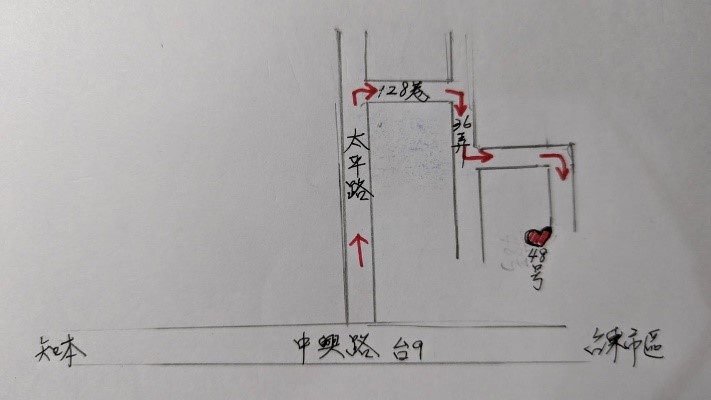 128巷
36弄
太平路
48号
知本
中興路 台9
台東市區